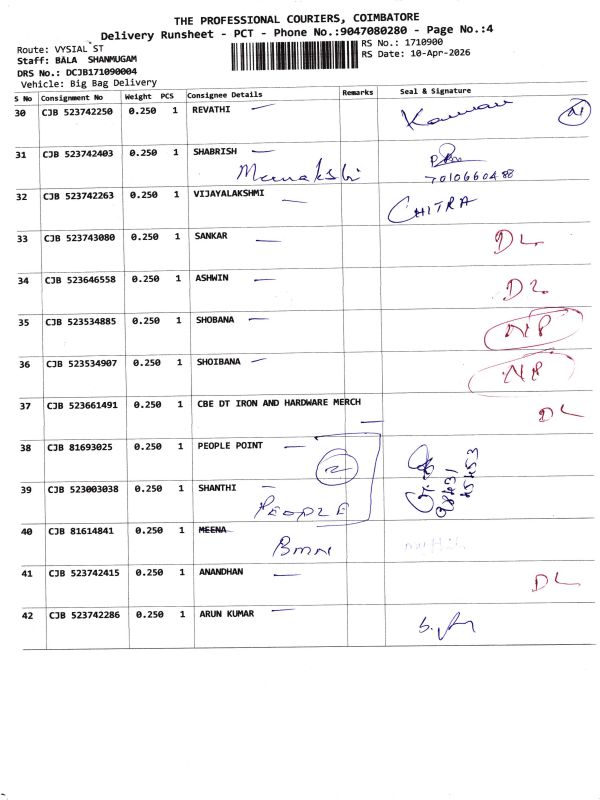 THE PROFESSIONAL COURIERS, COIMBATORE
Delivery Runsheet - PCT - Phone No.:9047080280 - Page No.:4
Route: VYSIAL ST
RS No.: 1710900
Staff: BALA SHANMUGAM
RS Date: 10-Apr-2026
DRS No.: DCJB171090004
Vehicle: Big Bag Delivery
S No Consignment No Weight PCS Consignee Details Remarks Seal & Signature
30 CJB 523742250 0.250 1 REVATHI
31 CJB 523742403 0.250 1 SHABRISH
Meenakshi
7010660488
32 CJB 523742263 0.250 1 VIJAYALAKSHMI
CHITRA
33 CJB 523743080 0.250 1 SANKAR DL
34 CJB 523646558 0.250 1 ASHWIN DL
35 CJB 523534885 0.250 1 SHOBANA NP
36 CJB 523534907 0.250 1 SHOIBANA NP
37 CJB 523661491 0.250 1 CBE DT IRON AND HARDWARE MERCH DL
38 CJB 81693025 0.250 1 PEOPLE POINT
2
39 CJB 523003038 0.250 1 SHANTHI
PEOPLE
98431
45453
40 CJB 81614841 0.250 1 MEENA
BMN
41 CJB 523742415 0.250 1 ANANDHAN DL
42 CJB 523742286 0.250 1 ARUN KUMAR